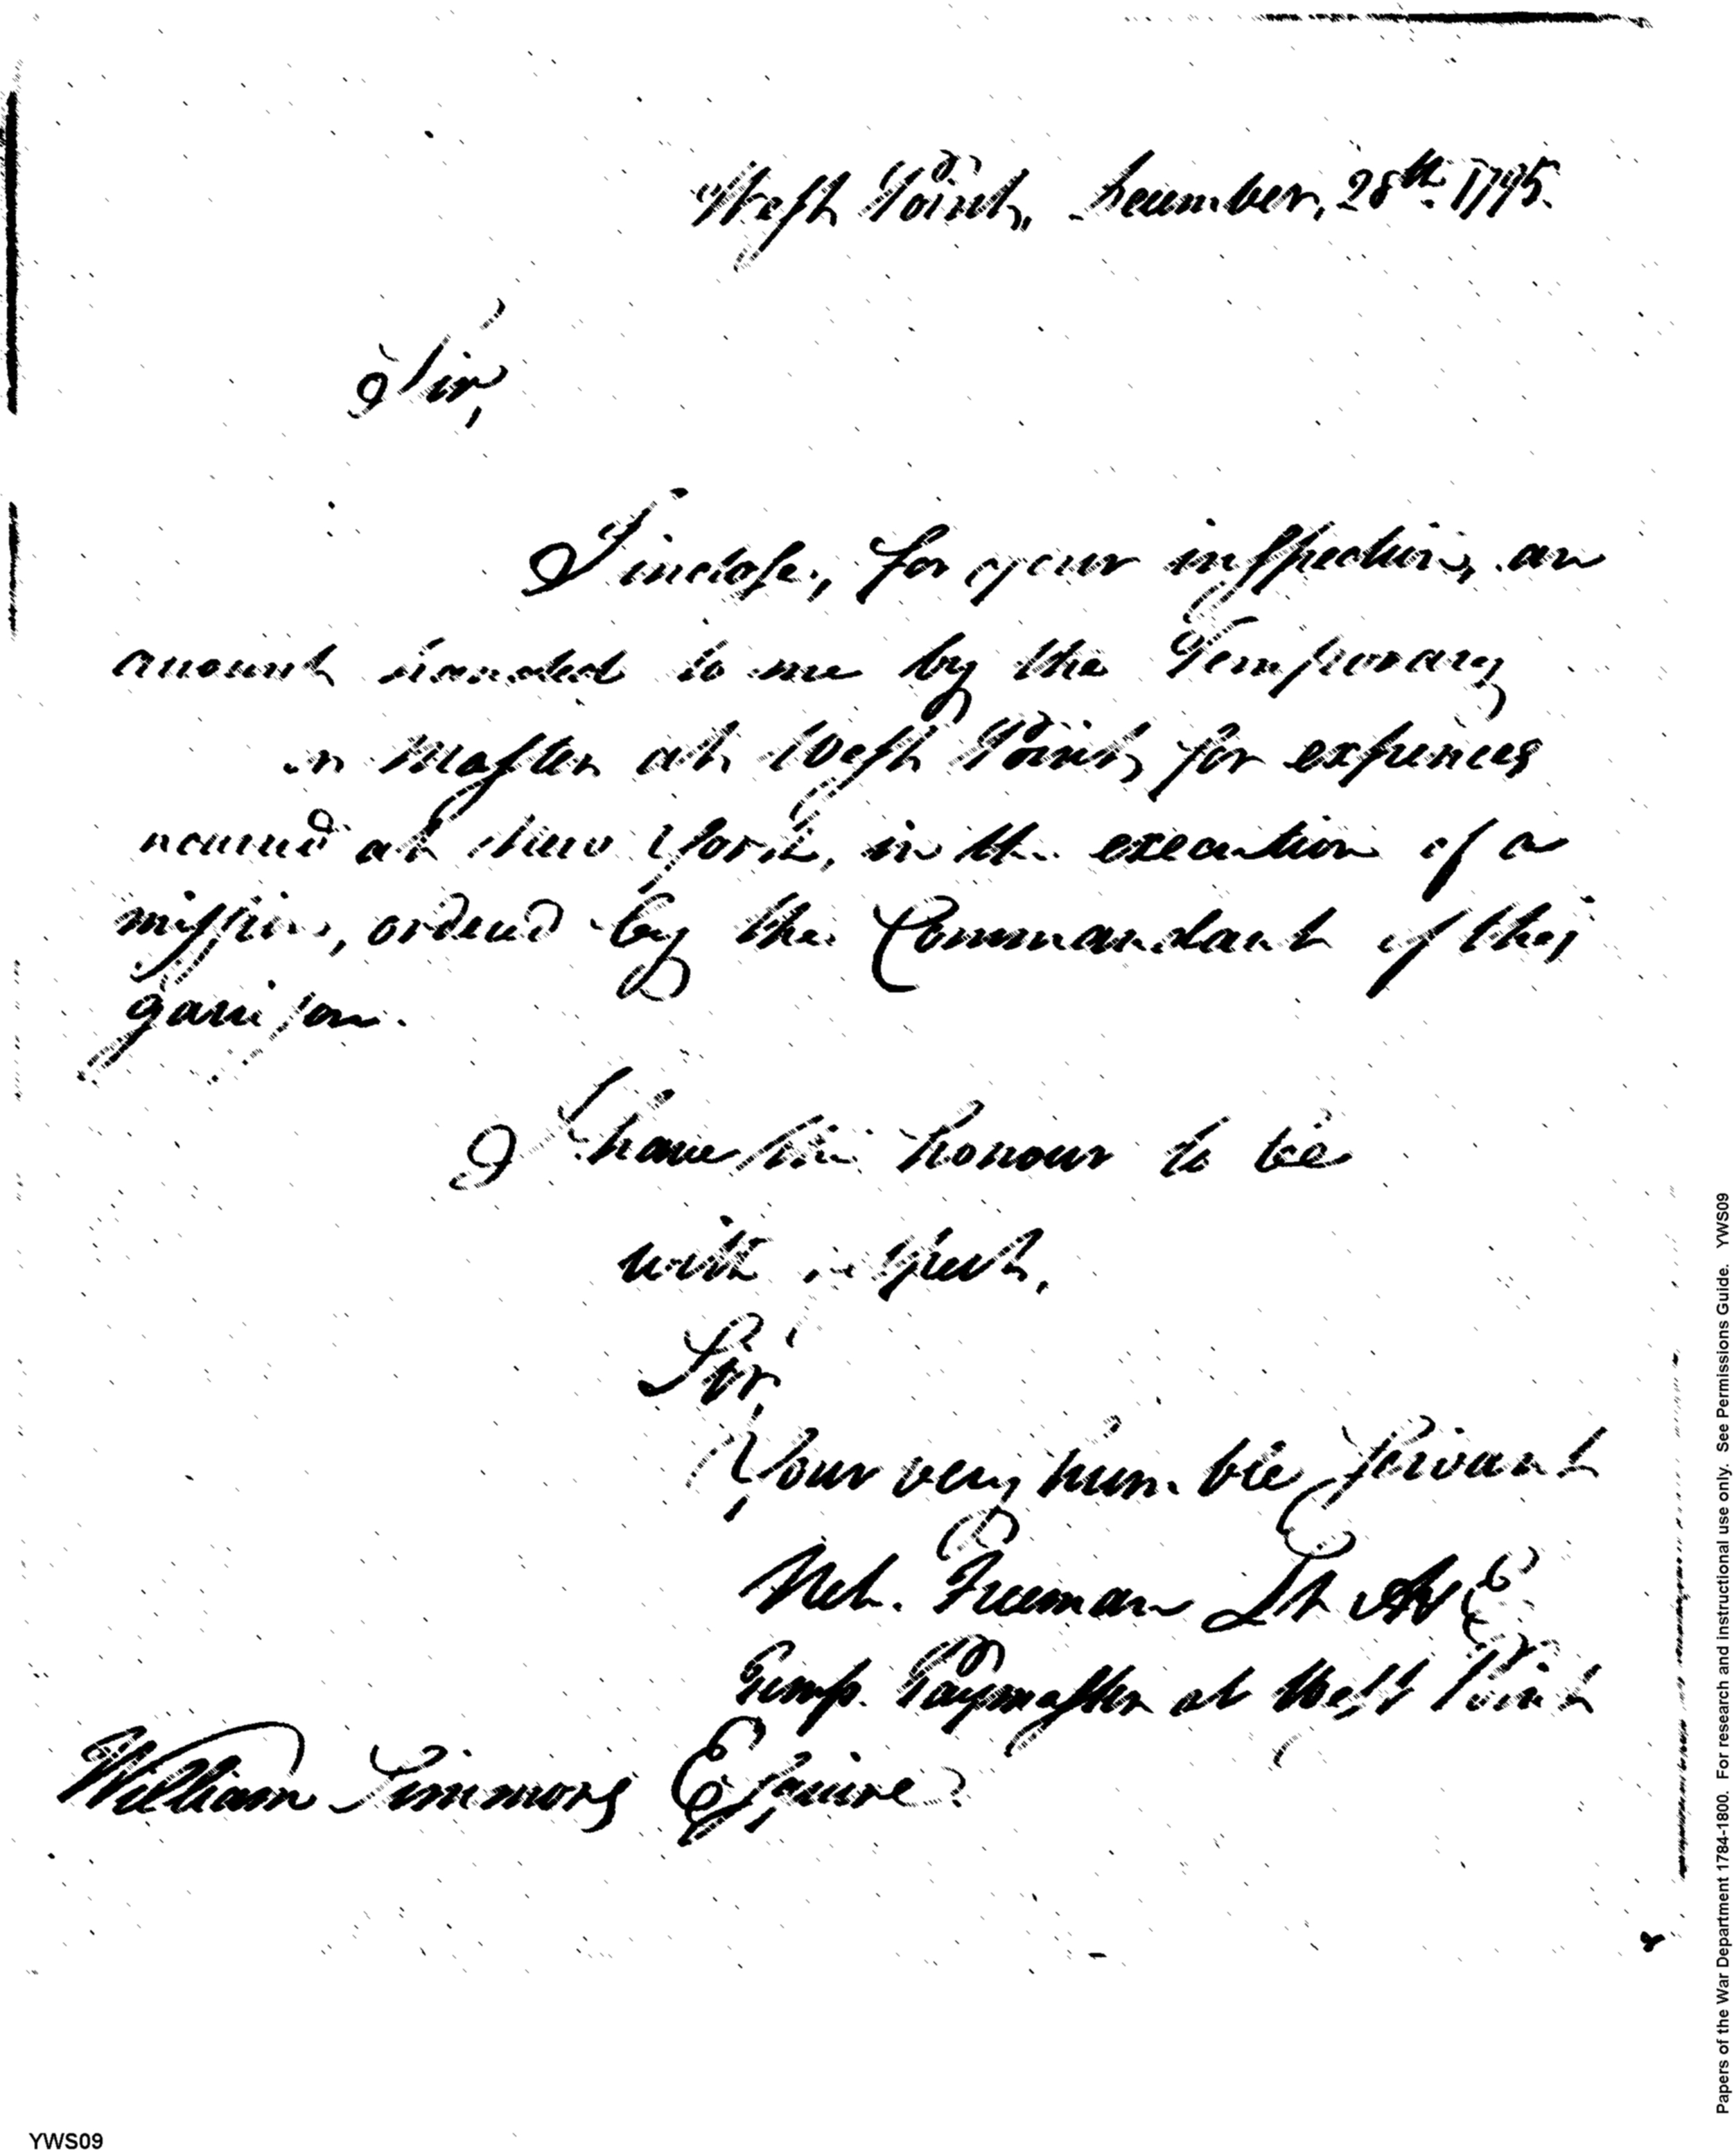 West Point, December, 28th. 1795.
Sir,
I inclose, for your inspection, an
amount handed to me by the Temporary
Master at West Point, for expences
at New York, in the execution of a
mission, ordered by the Commandant of this
garrison.
I have the honour to be
with respect,
Sir,
Your very humble servant
Neh. Freeman Lt A & E
Temp. Paymaster at West Point
William Simmons Esquire
Papers of the War Department 1784-1800. For research and instructional use only. See Permissions Guide. YWS09
YWS09